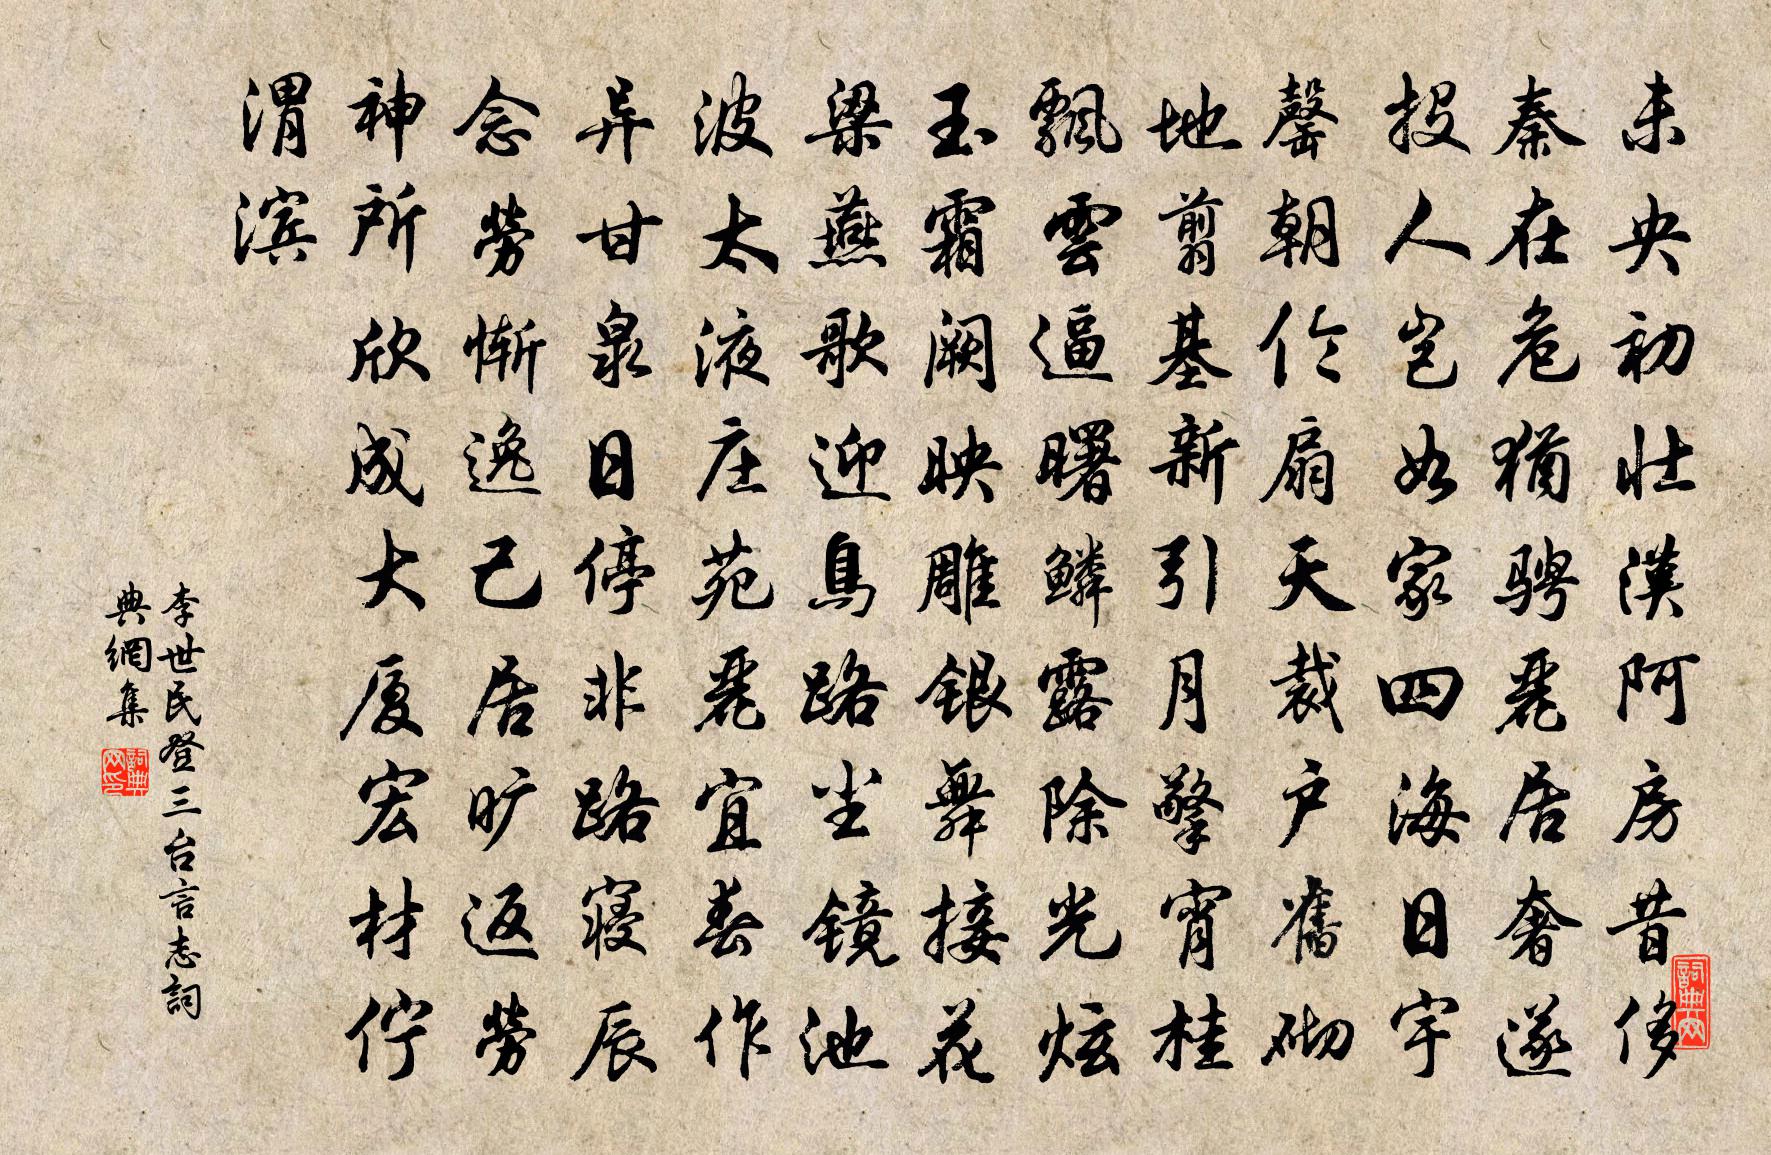 未央初壮漢阿房昔侈
秦在危猶骋麗居奢遂
投人岂如家四海日宇
罄朝伦扇天裁户舊砌
地翦基新引月擎宵桂
飄雲逼曙鳞露除光炫
玉霜阙映雕银舞接花
梁燕歌迎鳥路尘镜池
波太液庄苑麗宜春作
异甘泉日停非路寝辰
念勞惭逸己居旷返勞
神所欣成大厦宏材伫
渭滨
李世民登三台言志詞
典網集
詞典网
詞典网印